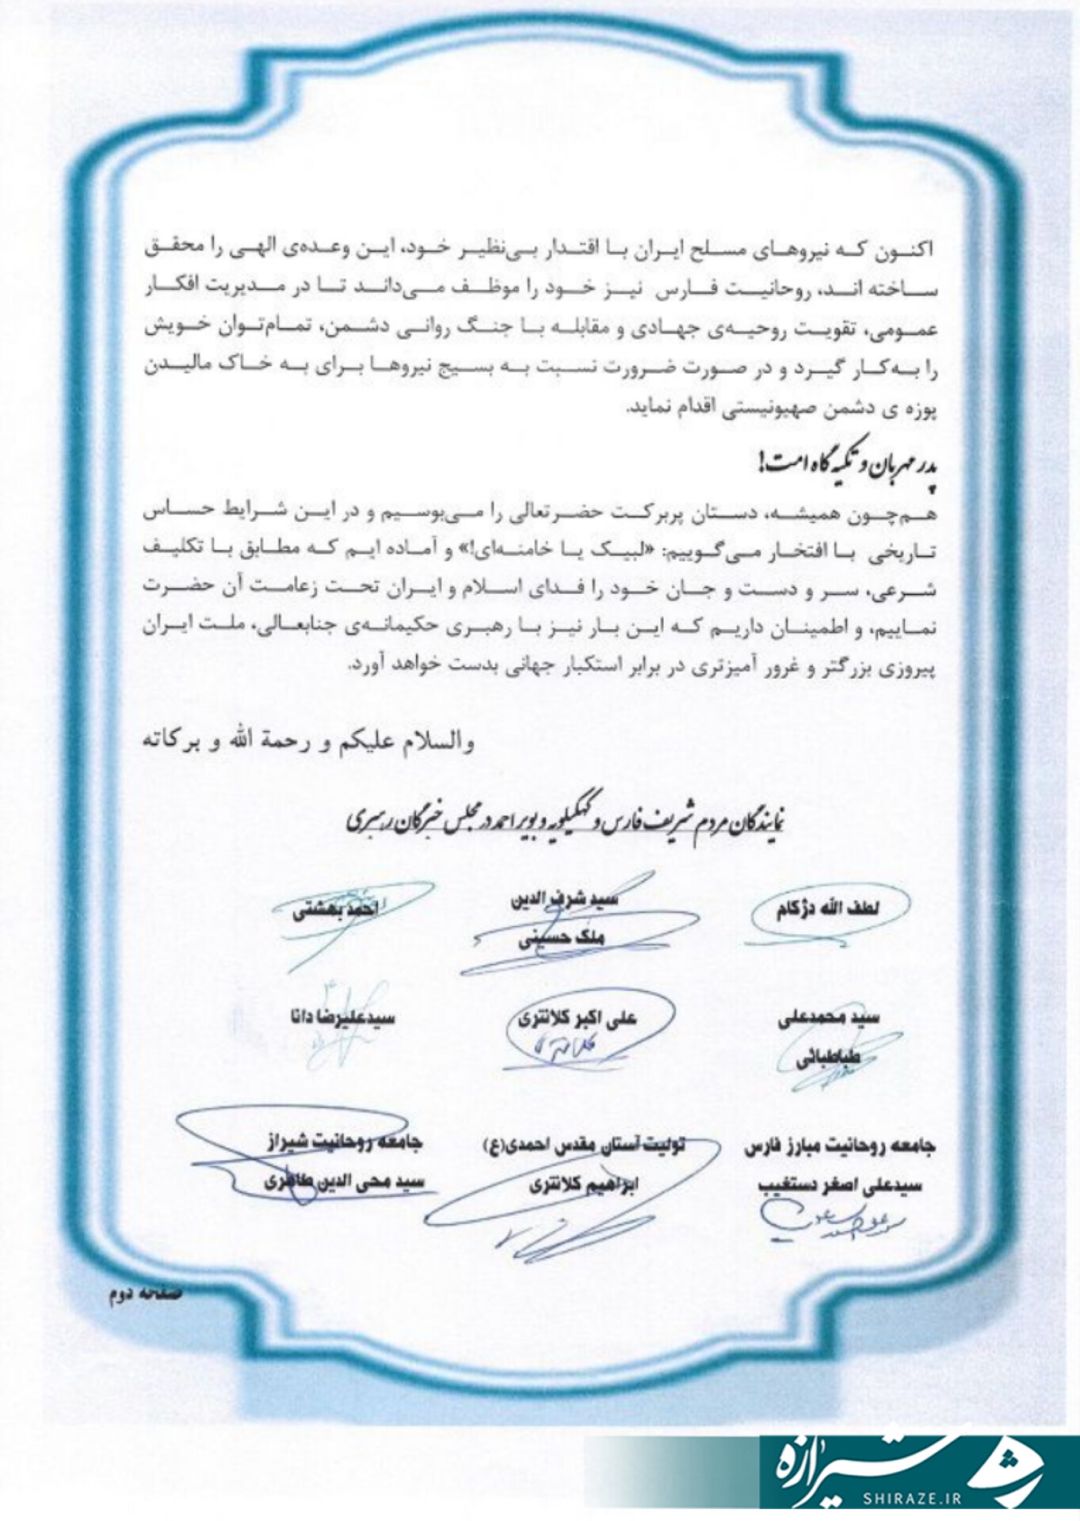 اکنون که نیروهای مسلح ایران با اقتدار بی‌نظیر خود، این وعده‌ی الهی را محقق
ساخته اند، روحانیت فارس نیز خود را موظف می‌داند تا در مدیریت افکار
عمومی، تقویت روحیه‌ی جهادی و مقابله با جنگ روانی دشمن، تمام‌توان خویش
را به‌کار گیرد و در صورت ضرورت نسبت به بسیج نیروها برای به خاک مالیدن
پوزه ی دشمن صهیونیستی اقدام نماید.
پدر مهربان و تکیه گاه امت!
هم‌چون همیشه، دستان پربرکت حضرتعالی را می‌بوسیم و در این شرایط حساس
تاریخی با افتخار می‌گوییم: «لبیک یا خامنه‌ای!» و آماده ایم که مطابق با تکلیف
شرعی، سر و دست و جان خود را فدای اسلام و ایران تحت زعامت آن حضرت
نماییم، و اطمینان داریم که این بار نیز با رهبری حکیمانه‌ی جنابعالی، ملت ایران
پیروزی بزرگتر و غرور آمیزتری در برابر استکبار جهانی بدست خواهد آورد.
والسلام علیکم و رحمة الله و برکاته
نمایندگان مردم شریف فارس و کهکیلویه و بویر احمد در مجلس خبرگان رهبری
لطف الله دژکام
سید شرف الدین
ملک حسینی
احمد بهشتی
سید محمدعلی
طباطبائی
علی اکبر کلانتری
سیدعلیرضا دانا
جامعه روحانیت مبارز فارس
سیدعلی اصغر دستغیب
تولیت آستان مقدس احمدی(ع)
ابراهیم کلانتری
جامعه روحانیت شیراز
سید محی الدین طاهری
صفحه دوم
شیرازه
SHIRAZE.IR